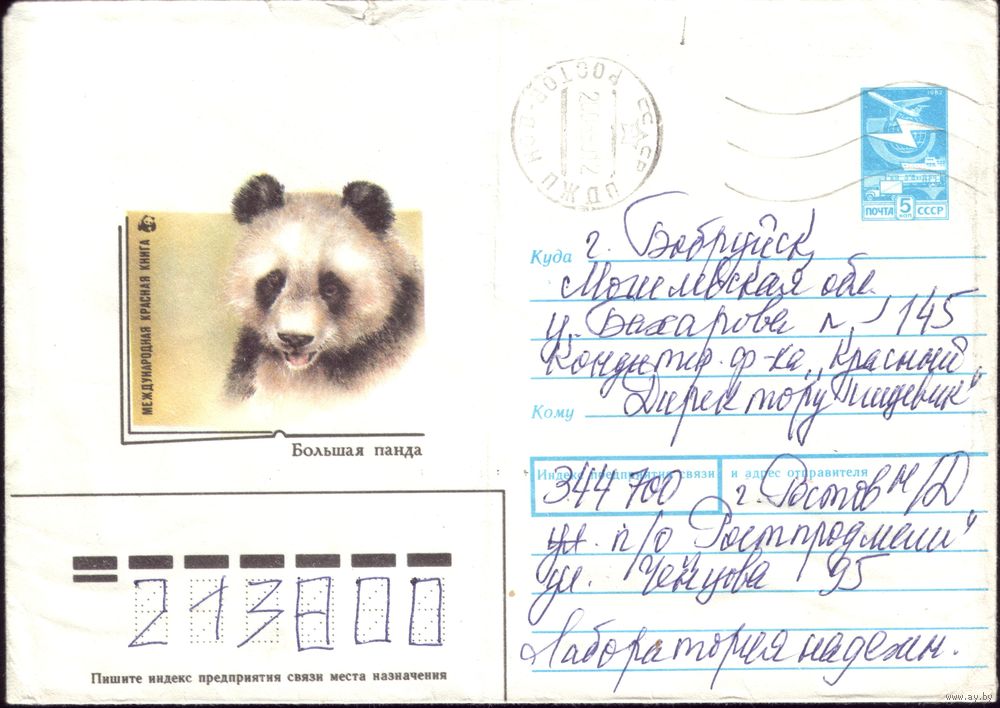 РОСТОВ-Н-ДЖИ
СССР
1982
ПОЧТА 5 КОП СССР
МЕЖДУНАРОДНАЯ КРАСНАЯ КНИГА
Большая панда
Куда г. Бобруйск,
Могилевская обл.
ул. Бахарова 145
Кондитер. ф-ка „Красный
Кому Директору Пищевик"
Индекс предприятия связи и адрес отправителя
344700 г. Ростов н/Д
ул. п/о Ростпродмаш"
ул. 95
Лаборатория надежн.
213800
Пишите индекс предприятия связи места назначения
www.ay.by